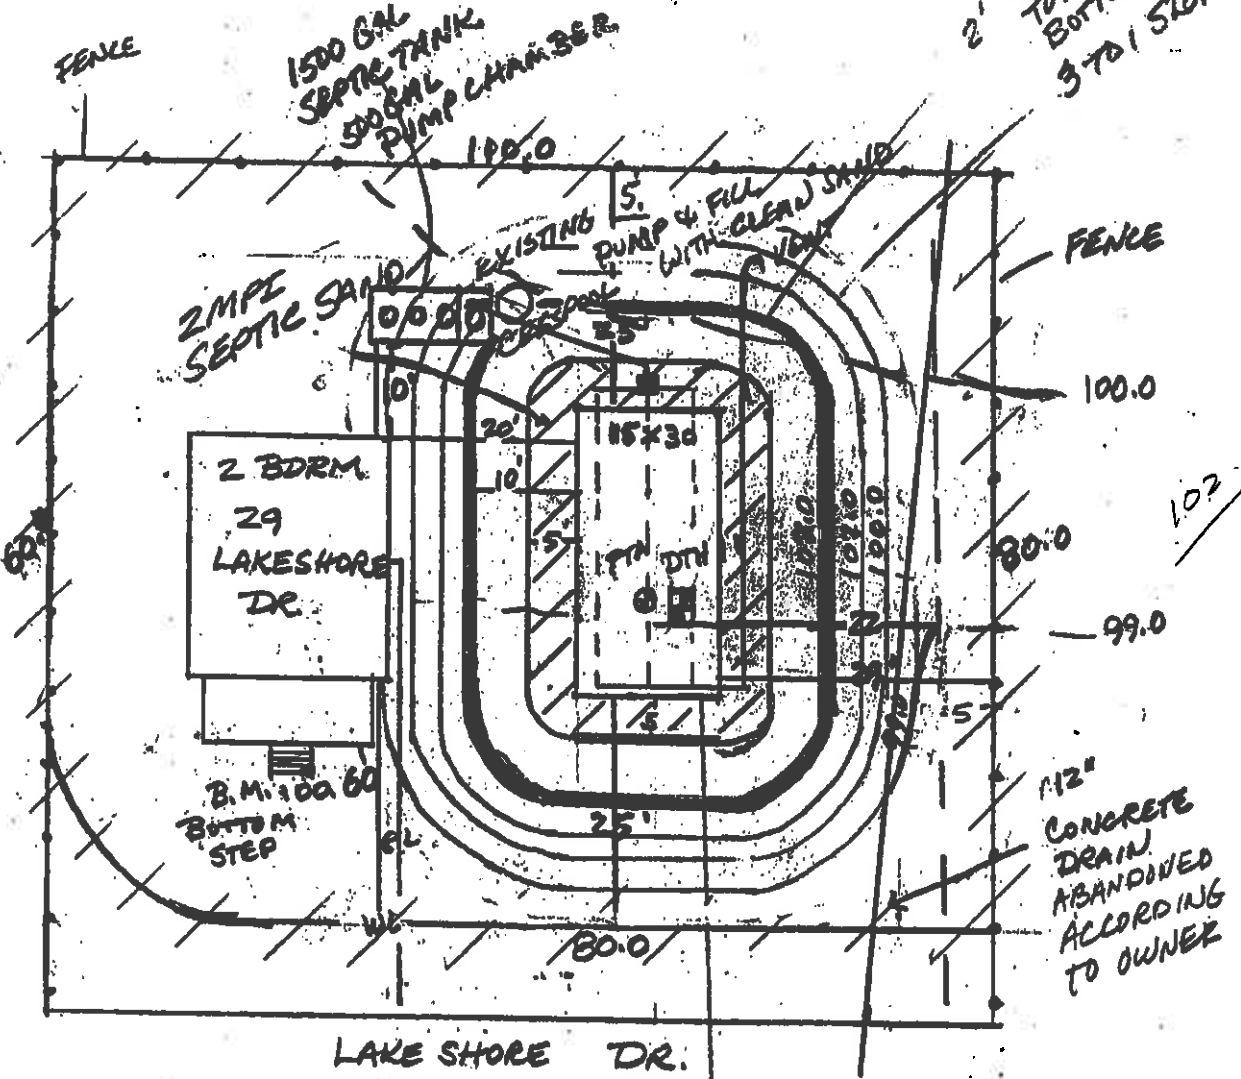 FENCE
1500 GAL
SEPTIC TANK
500 GAL
PUMP CHAMBER
2'
3 TO 1
100.0
5'
EXISTING
CESSPOOL
PUMP & FILL
WITH CLEAN SAND
VENT
FENCE
2MPI
SEPTIC SAND
10'
25'
100.0
20'
15X30
10'
2 BDRM.
29
LAKESHORE
DR.
5'
PTH DTH
102.0
100.0
102
60.0
80.0
22
99.0
29'
5
5
B.M. 100.60
BOTTOM
STEP
25'
12"
CONCRETE
DRAIN
ABANDONED
ACCORDING
TO OWNER
WL
80.0
LAKE SHORE DR.